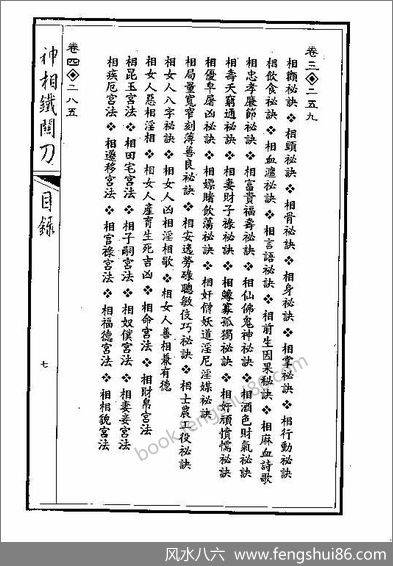 卷三❖二五九
相顴祕訣❖相頭祕訣❖相骨祕訣❖相身祕訣❖相掌祕訣❖相行動祕訣
相飲食祕訣❖相血瀘祕訣❖相言語祕訣❖相前生因果祕訣❖相麻血詩歌
相忠孝廉節祕訣❖相富貴福壽祕訣❖相仙佛鬼神祕訣❖相酒色財氣祕訣
相壽夭窮通祕訣❖相妻財子祿祕訣❖相鰥寡孤獨祕訣❖相奸頑憤懦祕訣
相優卑屠凶祕訣❖相嫖賭飲蕩祕訣❖相奸僧妖道淫尼淫媒祕訣
相局量寬窄刻薄善良祕訣❖相安逸勞碌聰敏伎巧祕訣❖相士農工役祕訣
相女人八字祕訣❖相女人凶相淫相歌❖相女人善相兼有德
相女人惡相淫相❖相女人產育生死吉凶❖相命宮法❖相財帛宮法
相昆玉宮法❖相田宅宮法❖相子嗣宮法❖相奴僕宮法❖相妻妾宮法
相疾厄宮法❖相遷移宮法❖相官祿宮法❖相福德宮法❖相相貌宮法
卷四❖二八五
神相鐵關刀
目錄
七
book.fengshui86.com
风水八六 www.fengshui86.com